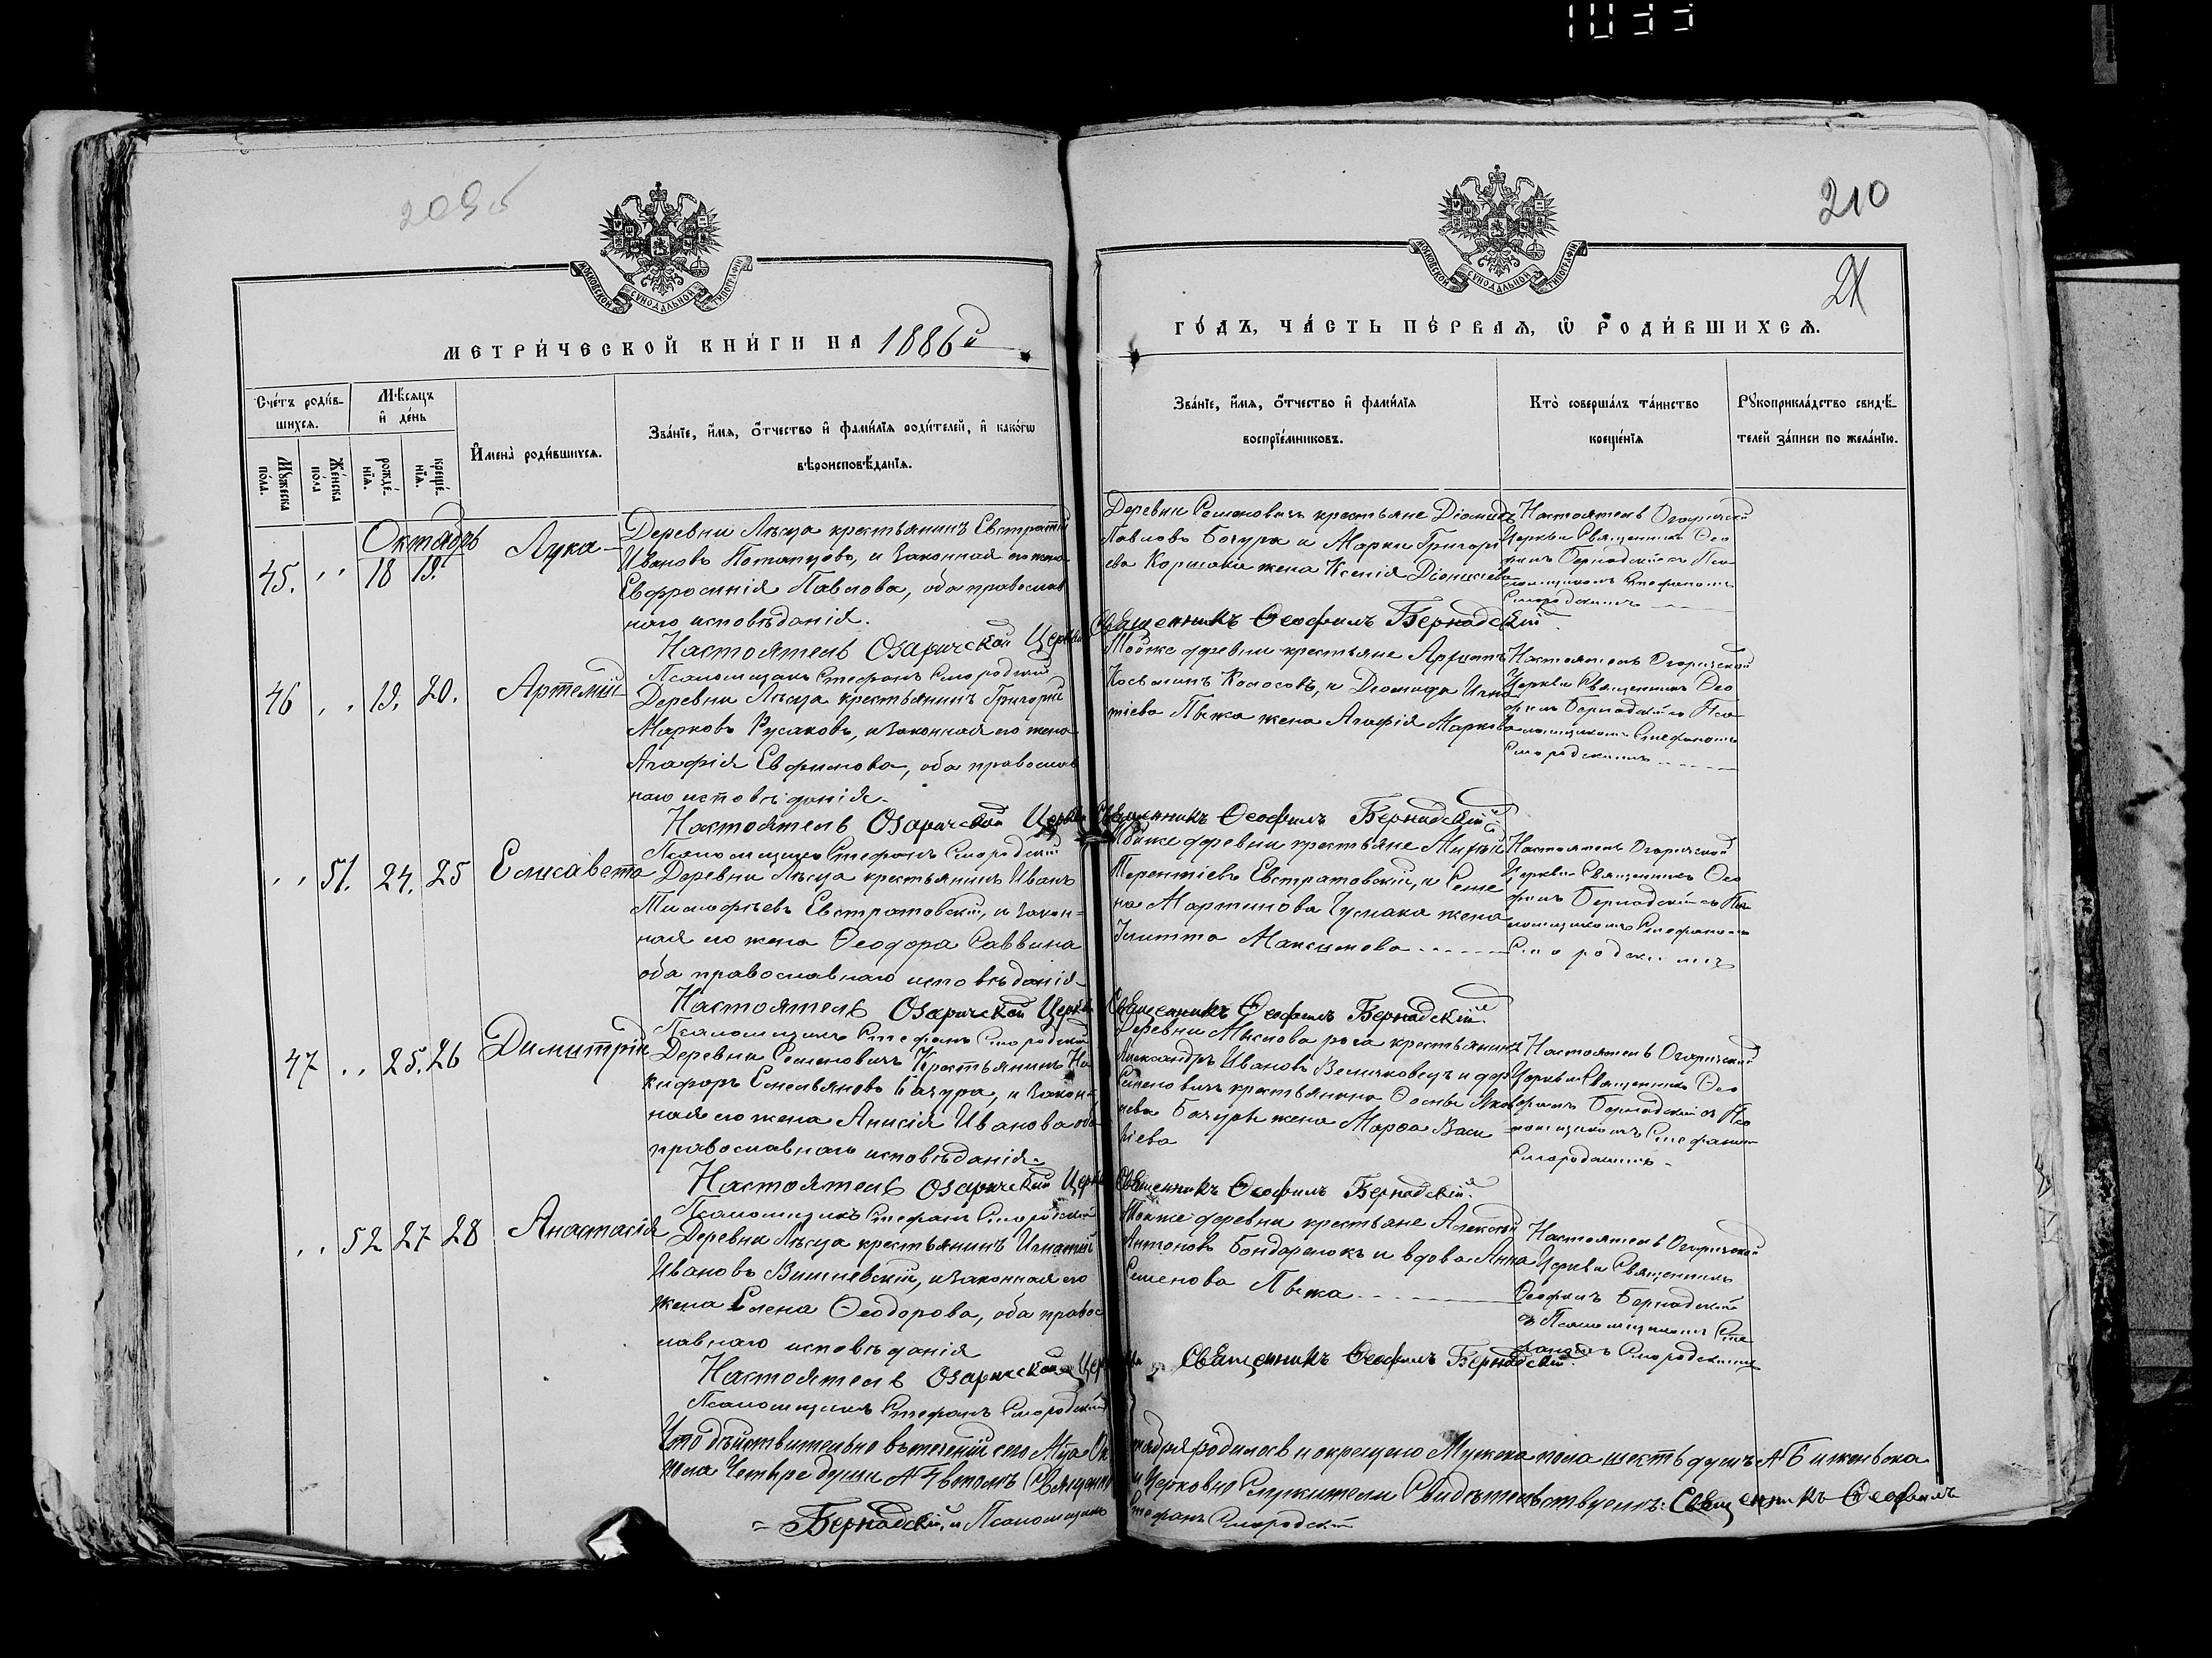 1033
209 б
210
21
МОСКОВСКОЙ СѴНОДАЛЬНОЙ ТИПОГРАФІИ
МОСКОВСКОЙ СѴНОДАЛЬНОЙ ТИПОГРАФІИ
МЕТРИ́ЧЕСКОЙ КНИ́ГИ НА 1886й
ГО́ДЪ, ЧА́СТЬ ПЕ́РВАѦ, Ѡ҆ РОДИ́ВШИХСѦ.
Сче́тъ роди́в-
шихсѧ.
Мѣ́сяцъ
и҆ де́нь
Мꙋ́жеска
по́ла.
Же́нска
по́ла
рожде́-
нїѧ.
креще́-
нїѧ.
И҆мена̀ роди́вшихсѧ.
Зва́нїе, и҆́мѧ, ѻ҆́тчество и҆ фами́лїѧ роди́телей, и҆ како́гѡ
вѣроисповѣ́данїѧ.
Зва́нїе, и҆́мѧ, ѻ҆́тчество и҆ фами́лїѧ
воспрїе́мниковъ.
Кто̀ соверша́лъ та́инство
креще́нїѧ
Рꙋкоприкла́дство свидѣ́-
телей за́писи по жела́нїю.
Октябрь
45. " " 18 19. Лука
Деревни Лѣсца крестьянинъ Евстратій
Ивановъ Потапцовъ, и законная его жена
Евфросинія Павлова, оба православ
наго исповѣданія.
Деревни Семеновичъ крестьяне Діомидъ
Павловъ Бачура и Марка Григорі
ева Коршака жена Ксенія Діонисіева
Настоятель Озаричской
Церкви Священникъ Ѳео
филъ Бернадскій съ Пса
ломщикомъ Стефаномъ
Смородскимъ
Настоятель Озаричской Церкви Священникъ Ѳеофилъ Бернадскій
Псаломщикъ Стефанъ Смородскій
46 " " 19. 20. Артемій
Деревни Лѣсца крестьянинъ Григорій
Марковъ Русаковъ, и законная его жена
Агафія Евфимова, оба православ
наго исповѣданія
Тойже деревни крестьяне
Косьминъ Колосовъ, и Діомида Игна
тіева Пыжа жена Агафія Маркова
Настоятель Озаричской
Церкви Священникъ Ѳео
филъ Бернадскій съ Пса
ломщикомъ Стефаномъ
Смородскимъ
Настоятель Озаричской Церкви Священникъ Ѳеофилъ Бернадскій
Псаломщикъ Стефанъ Смородскій
" " 51. 24. 25 Елисавета
Деревни Лѣсца крестьянинъ Иванъ
Тимофѣевъ Евстратовскій, и закон=
ная его жена Ѳеодора Саввина
оба православнаго исповѣданія
Тойже деревни крестьяне
Терентіевъ Евстратовскій, и Семе
на Мартинова Чумака жена
Максимова
Настоятель Озаричской
Церкви Священникъ Ѳео
филъ Бернадскій съ Пса
ломщикомъ Стефаномъ
Смородскимъ
Настоятель Озаричской Церкви Священникъ Ѳеофилъ Бернадскій
Псаломщикъ Стефанъ Смородскій
47 " " 25. 26 Димитрій
Деревни Семеновичъ Крестьянинъ Ни
кифоръ Емельяновъ Бачура, и закон=
ная его жена Анисія Иванова оба
православнаго исповѣданія
Деревни Мыслова рога крестьянинъ
Александръ Ивановъ Величковецъ и дер
Семеновичъ крестьянина
Бачуры жена Марѳа Васи
ліева
Настоятель Озаричской
Церкви Священникъ Ѳео
филъ Бернадскій съ Пса
ломщикомъ Стефаномъ
Смородскимъ
Настоятель Озаричской Церкви Священникъ Ѳеофилъ Бернадскій
Псаломщикъ Стефанъ Смородскій
" " 52 27 28 Анастасія
Деревни Лѣсца крестьянинъ Игнатій
Ивановъ Вишневскій, и законная его
жена Елена Ѳеодорова, оба правос
лавнаго исповѣданія
Тойже деревни крестьяне Алексѣй
Антоновъ Бондаренокъ и вдова Анна
Семенова Пыжа
Настоятель Озаричской
Церкви Священникъ
Ѳеофилъ Бернадскій
съ Псаломщикомъ Сте
фаномъ Смородскимъ
Настоятель Озаричской Церкви Священникъ Ѳеофилъ Бернадскій
Псаломщикъ Стефанъ Смородскій
Что дѣйствительно въ теченіи сего Мѣсяца Октября родилось и окрещено Мужска пола шесть душъ А 6 и женьска
пола Четыре души А 4 въ томъ Священно и Церковно Служители Свидѣтельствуемъ: Священникъ Ѳеофилъ
= Бернадскій, и Псаломщикъ Стефанъ Смородскій